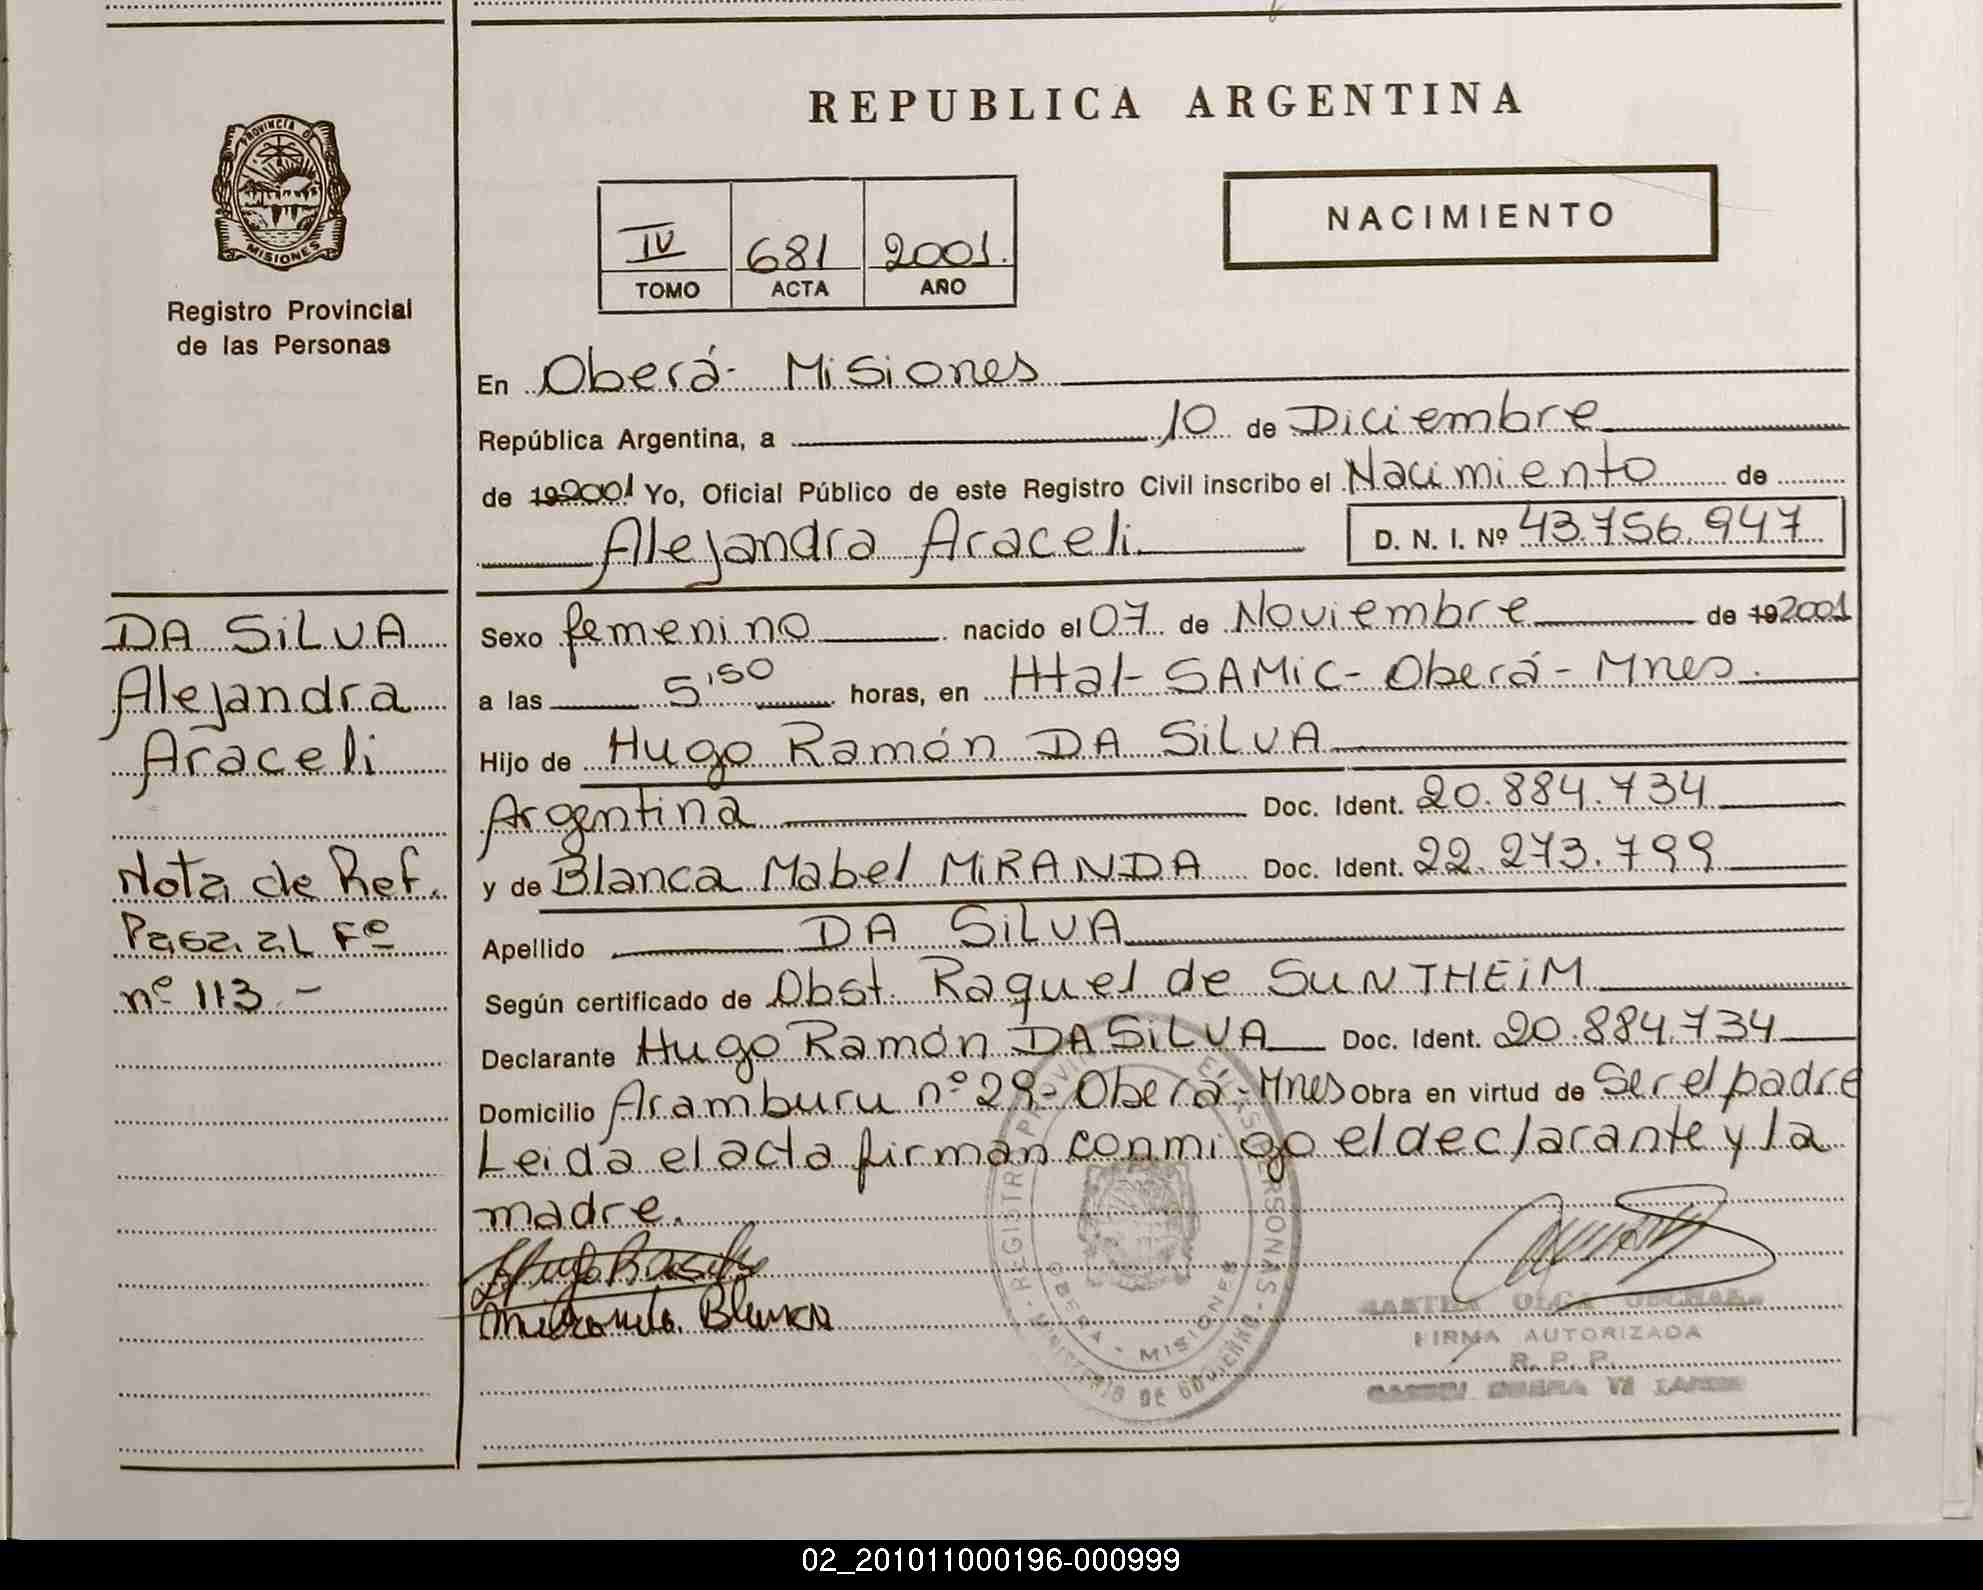 REPUBLICA ARGENTINA
PROVINCIA DE
MISIONES
Registro Provincial
de las Personas
IV 681 2001.
TOMO ACTA AÑO
NACIMIENTO
En Oberá- Misiones
República Argentina, a 10 de Diciembre
de 192001 Yo, Oficial Público de este Registro Civil inscribo el Nacimiento de
Alejandra Araceli D. N. I. Nº 43.756.947
DA SILVA
Alejandra
Araceli
Nota de Ref.
Pasa al Fº
nº 113.-
Sexo femenino nacido el 07 de Noviembre de 192001
a las 5'50 horas, en Htal- SAMIC- Oberá- Mnes.
Hijo de Hugo Ramón DA SILVA
Argentina Doc. Ident. 20.884.734
y de Blanca Mabel MIRANDA Doc. Ident. 22.273.799
Apellido DA SILVA
Según certificado de Obst. Raquel de SUNTHEIM
Declarante Hugo Ramón DA SILVA Doc. Ident. 20.884.734
Domicilio Aramburu nº 29- Oberá- Mnes Obra en virtud de Ser el padre
Leida el acta firman conmigo el declarante y la
madre.
Blanca
REGISTRO PROVINCIAL DE LAS PERSONAS
MINISTERIO DE GOBIERNO
OBERA - MISIONES
OLGA
FIRMA AUTORIZADA
R. P. P.
02_201011000196-000999